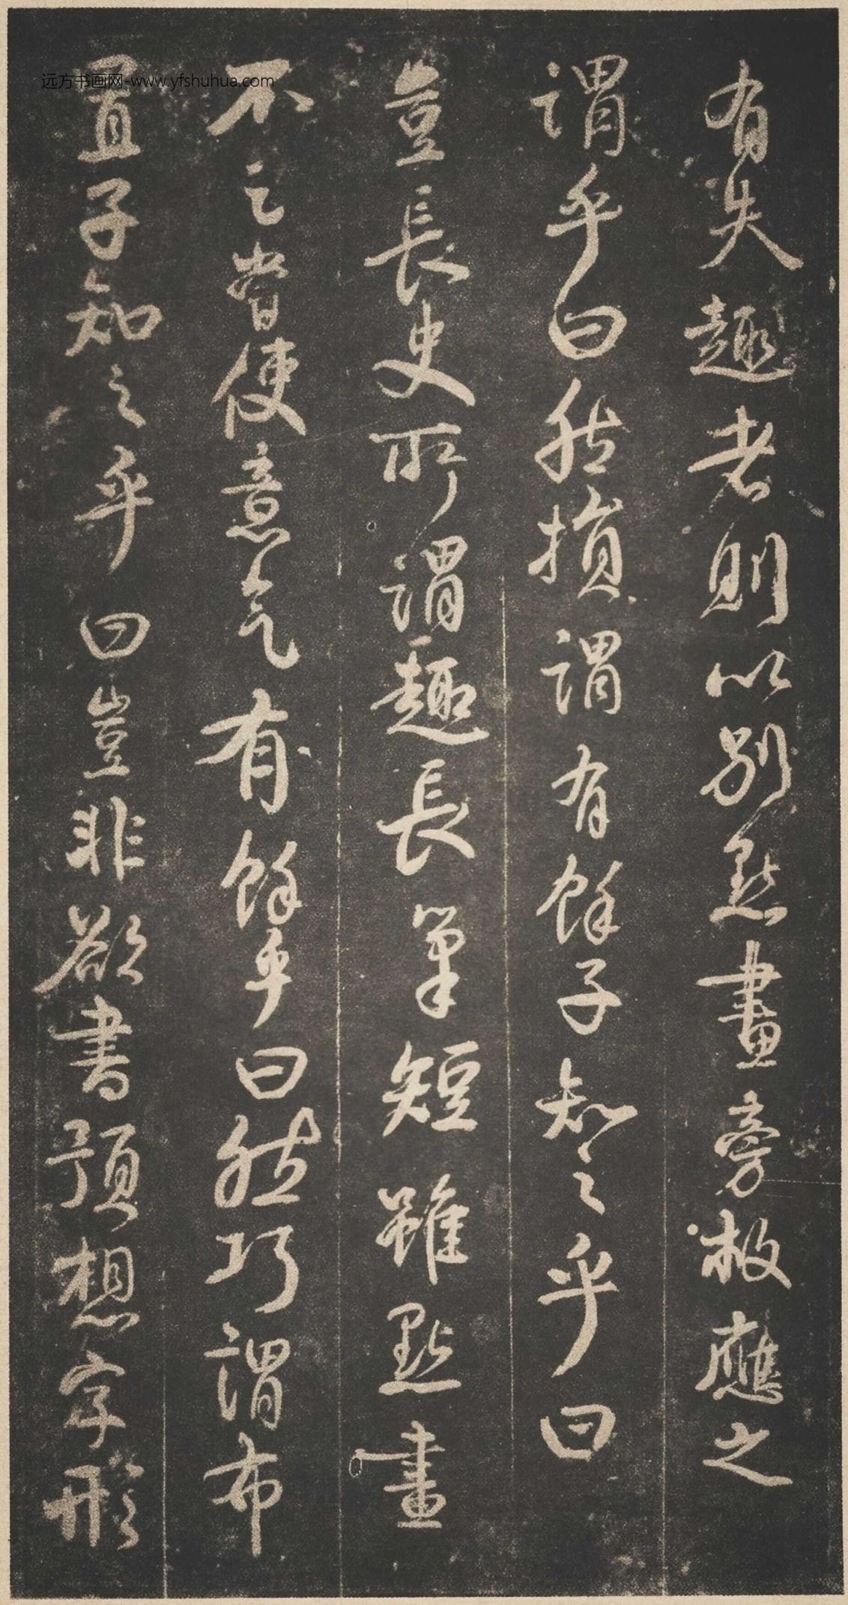 有失趣者則以別點畫旁救應之
謂乎曰然損謂有餘子知之乎曰
豈長史所謂趣長筆短雖點畫
不足嘗使意氣有餘乎曰然巧謂布
置子知之乎曰豈非欲書預想字形
远方书画网-www.yfshuhua.com